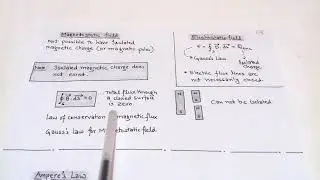 Magnetostatic field
Not possible to have isolated
magnetic charge (or magnetic poles)
Note: Isolated magnetic charge does
not exist.
∮ B⃗.dS⃗ = 0
Total flux through
a closed surface
is zero
Law of conservation of magnetic flux
Gauss's law for Magnetostatic field
Electrostatic field
Gauss's Law
Electric flux lines are not
necessarily closed.
Can not be isolated.
Ampere's Law